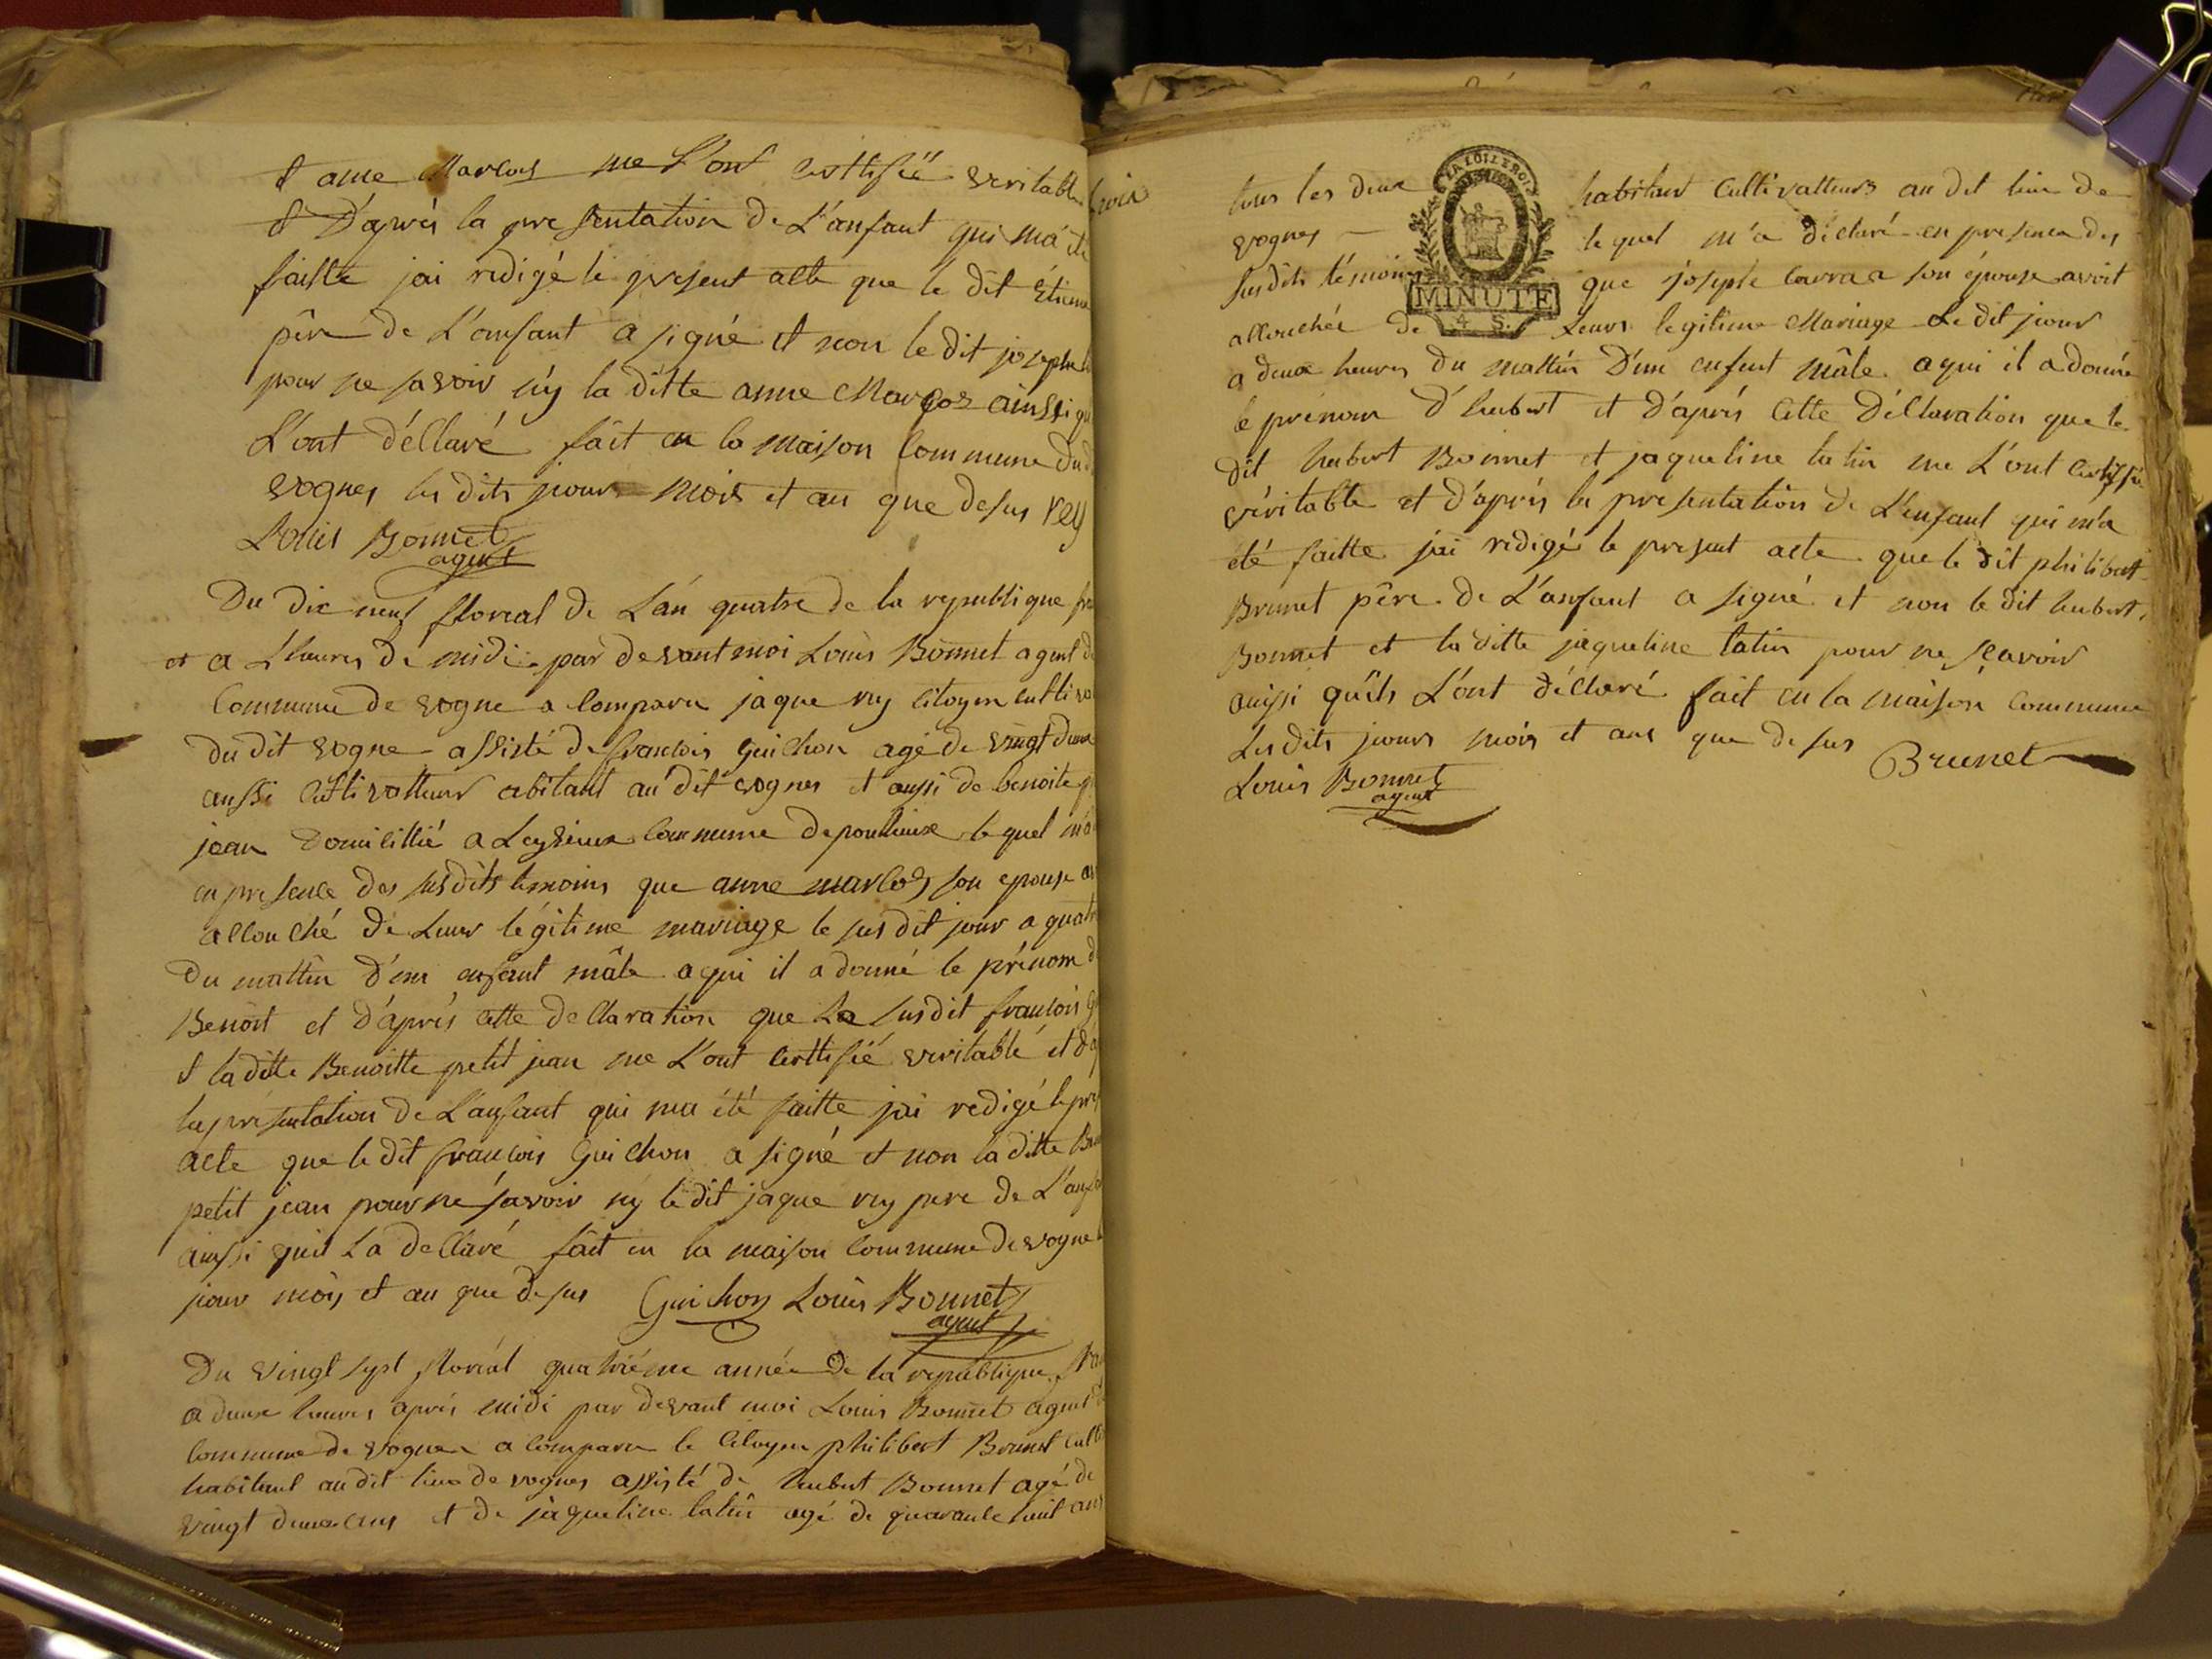 & anne Marcoz me l'ont certtifié veritable
& D'aprés la presentation de L'anfant qui m'a été
faitte jai redigé le present acte que le dit Étienne
pére de L'anfant a signé et non le dit joseph
pour ne savoir n'y la ditte anne Marcoz ainssi qu
L'ont déclaré fait en la maison Commune du d
vognes les dits jours mois et an que desus rey
Louis Bonnet
agent
Du dix neuf floreal de L'an quatre de la republique fra
et a L'heures de midi par devant moi Louis Bonnet agent d
Commune de vogne a comparu jaque rey citoyen cultiva
du dit vogne assisté de francois Guichon agé de vingt deux
aussi cultivatteur abitant au dit vognes et aussi de benoite p
jean domicillié a Leyrieux commune de poulieux lequel m'a
en presence des susdits temoins que anne marcoz son epouse a
allouché de Leur légitime mariage le sus dit jour a quatre
du mattin d'un anfant mâle a qui il a donné le prénom d
Benoit et d'aprés cette declaration que Le susdit francois G
& la ditte Benoitte petit jean me L'ont certtifié veritable et d'a
la présentation de L'anfant qui ma été faitte jai redigé le pres
acte que le dit francois Guichon a signé et non la ditte Ben
petit jean pour ne savoir ny le dit jaque rey pere de L'anf
ainssi qu'il La declaré fait en la maison commune de vogne
jour mois et an que desus Guichon Louis Bonnet
agent
Du vingt sept floréal quatriéme année de la republique fran
a deux heures aprés midi par devant moi Louis Bonnet agent d
commune de vognes a comparu le citoyen philibert Brunet cult
habitant au dit lieu de vognes assisté de hubert Bonnet agé de
vingt deux ans et de jaqueline latin agé de quarante huit ans
tous les deux habitant Cultivatteurs au dit lieu de
vognes lequel m'a déclaré en presence des
susdits témoins que josepte carraz son épouse avoit
allouchée de Leurs legitime Mariage Le dit jour
a deux heures du mattin D'un enfent mâle a qui il a donné
le prénom d'hubert et d'aprés cette Déclaration que le
dit hubert Bonnet et jaqueline latin me L'ont certiffié
véritable et d'aprés la presentation de L'enfant qui m'a
été faitte jai redigé le present acte que le dit philibert
Brunet pére de L'anfant a signé et non le dit hubert
Bonnet et la ditte jaqueline latin pour ne scavoir
ainssi qu'ils L'ont déclaré fait en la maison commune
Les dits jours mois et ans que desus Brunet
Louis Bonnet
agent
LA LOI LE ROI
MINUTE
4 S.